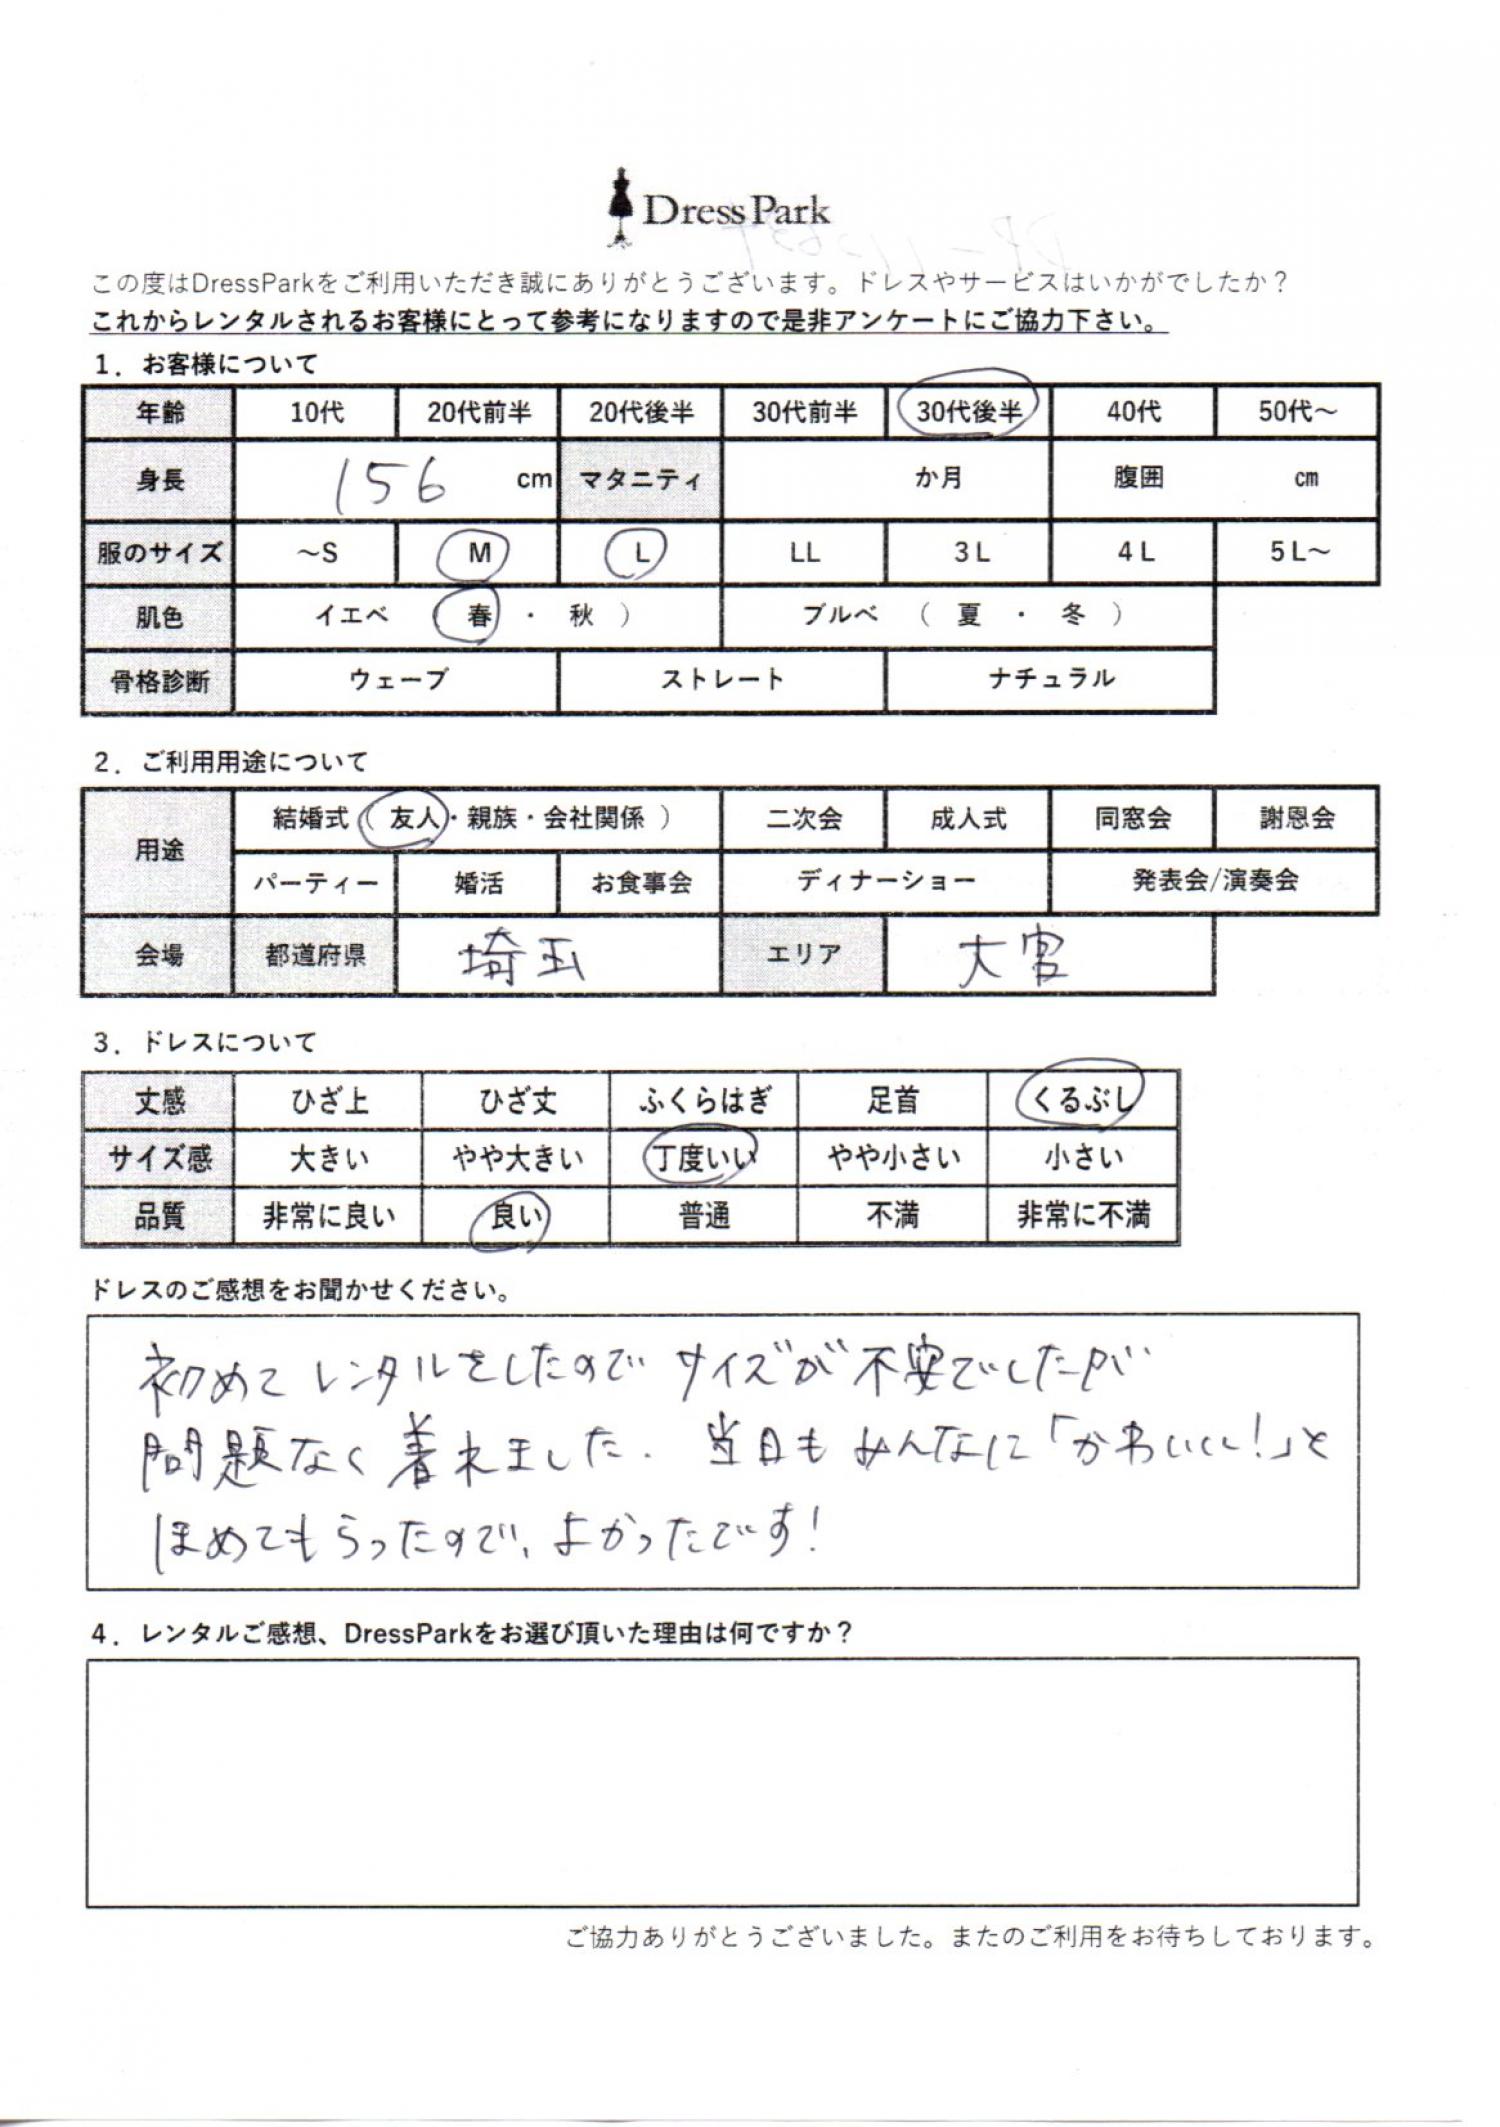 Dress Park
この度はDressParkをご利用いただき誠にありがとうございます。ドレスやサービスはいかがでしたか？
これからレンタルされるお客様にとって参考になりますので是非アンケートにご協力下さい。
1．お客様について
年齢 10代 20代前半 20代後半 30代前半 30代後半 40代 50代～
身長 156 cm マタニティ か月 腹囲 cm
服のサイズ ～S M L LL 3L 4L 5L～
肌色 イエベ （ 春 ・ 秋 ） ブルベ （ 夏 ・ 冬 ）
骨格診断 ウェーブ ストレート ナチュラル
2．ご利用用途について
用途 結婚式（ 友人・親族・会社関係 ） 二次会 成人式 同窓会 謝恩会
パーティー 婚活 お食事会 ディナーショー 発表会/演奏会
会場 都道府県 埼玉 エリア 大宮
3．ドレスについて
丈感 ひざ上 ひざ丈 ふくらはぎ 足首 くるぶし
サイズ感 大きい やや大きい 丁度いい やや小さい 小さい
品質 非常に良い 良い 普通 不満 非常に不満
ドレスのご感想をお聞かせください。
初めてレンタルをしたのでサイズが不安でしたが
問題なく着れました. 当日もみんなに「かわいい!」と
ほめてもらったので、よかったです!
4．レンタルご感想、DressParkをお選び頂いた理由は何ですか？
ご協力ありがとうございました。またのご利用をお待ちしております。